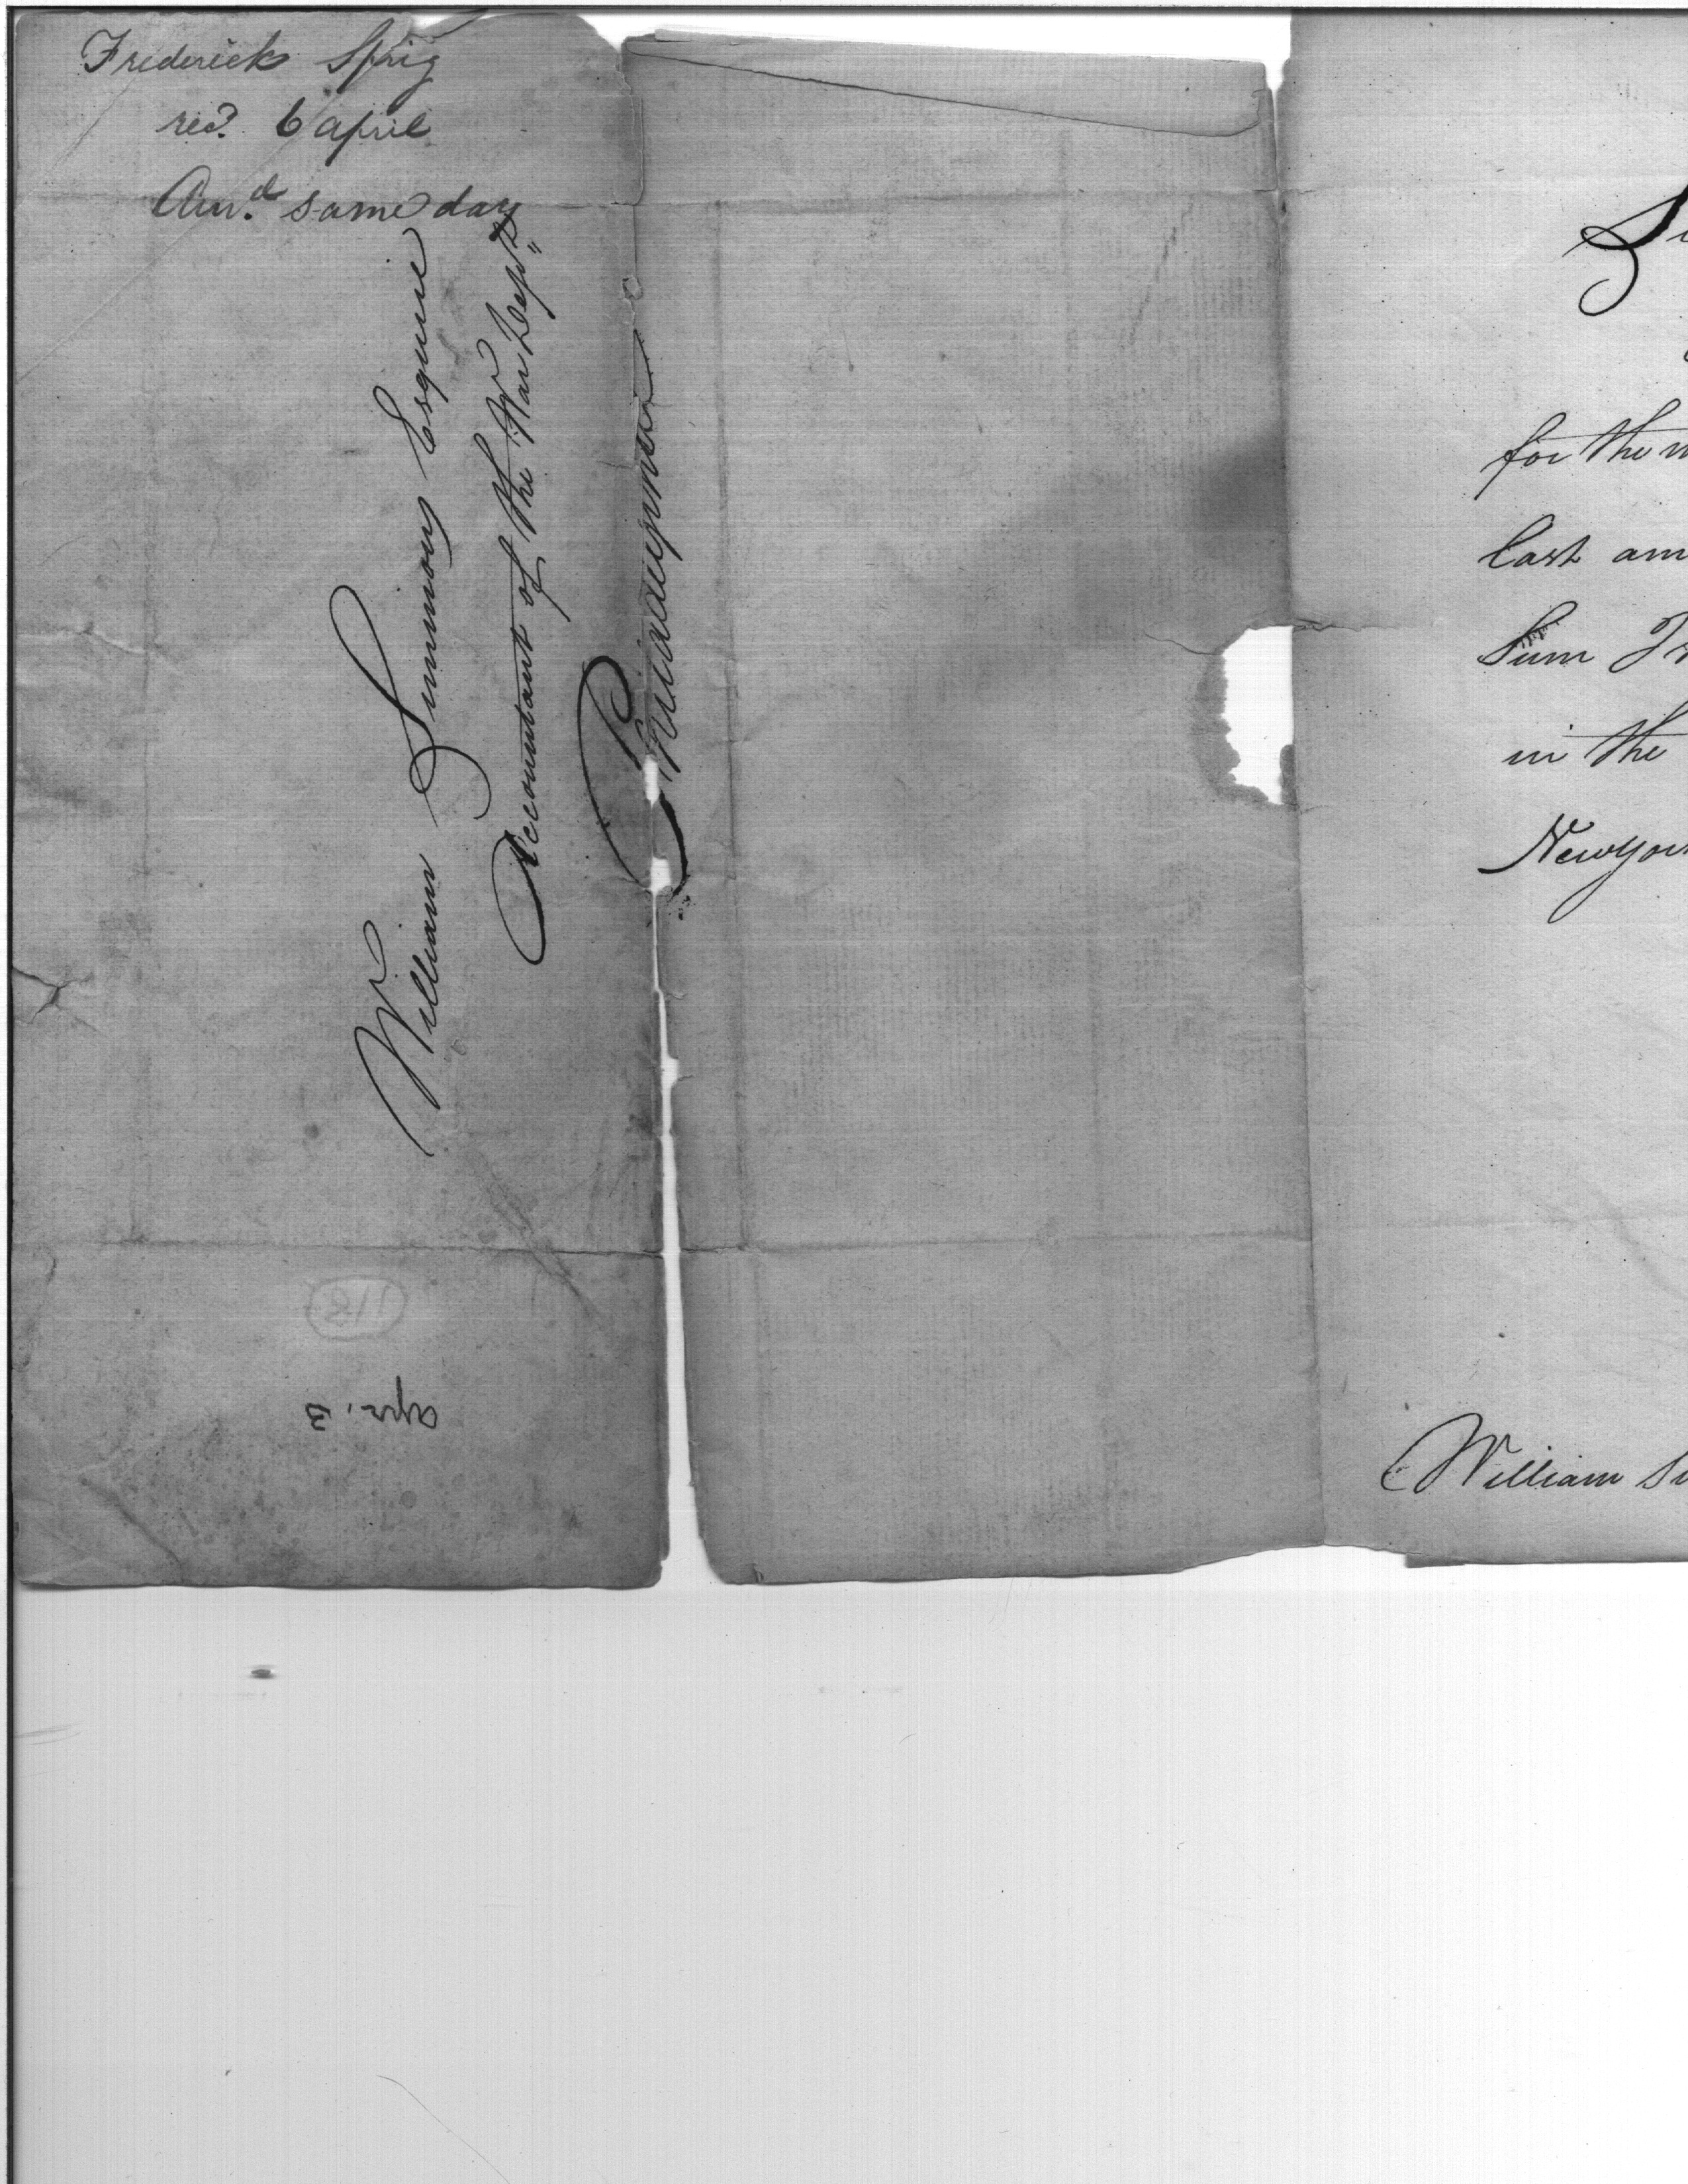 Frederick Sprig
recd. 6 april
Ansd. same day
William Simmons Esquire
Accountant of the War Dept"
Philadelphia
apr. 3
for the
last am
Sum I
in the
New
William Si